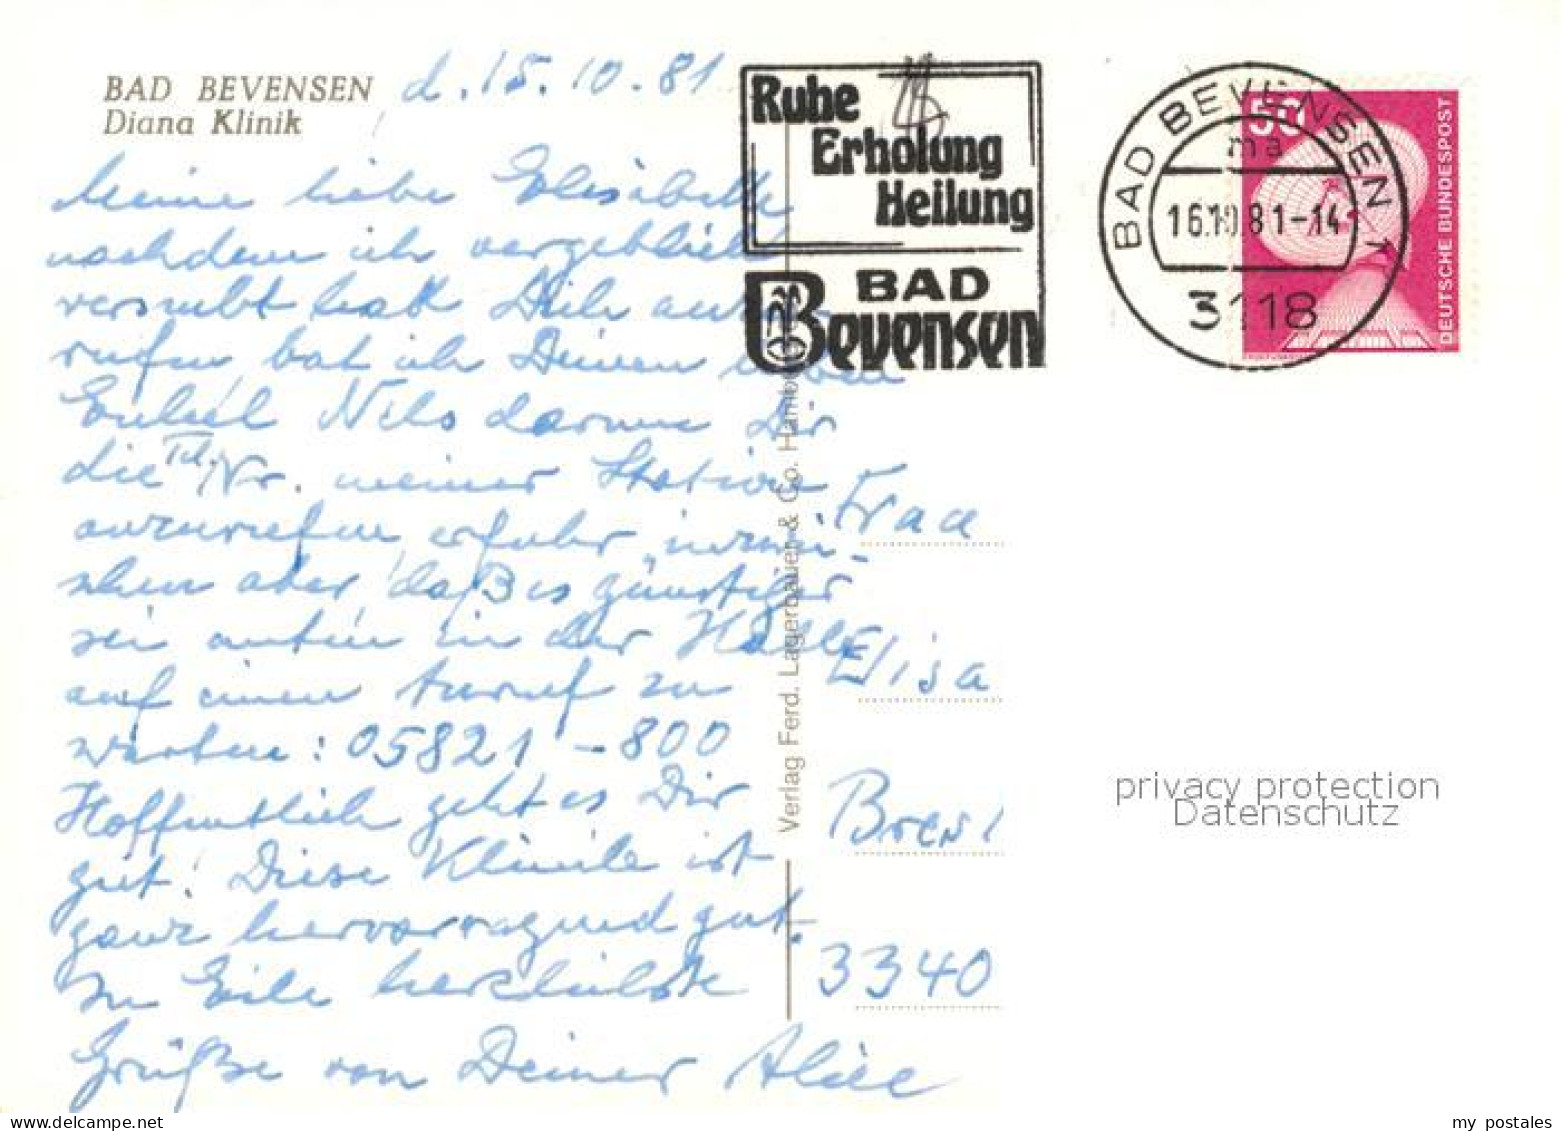 BAD BEVENSEN
Diana Klinik
d. 15.10.81
Meine liebe Elisabeth
nachdem ich vergeblich
versucht hatte Dich anzu
rufen, bat ich Deinen lieben
Enkel Nils darum Dir
die Tel. Nr. meiner Station
anzurufen, erfuhr inzwi-
schen aber daß es günstiger
sei unten in der Halle
auf einen Anruf zu
warten: 05821-800
Hoffentlich geht es Dir
gut! Diese Klinik ist
ganz hervorragend gut.
In Eile herzlichste
Grüße von Deiner Alice
Verlag Ferd. Lagerbauer & Co. Hamb
Ruhe
Erholung
Heilung
BAD
Bevensen
BAD BEVENSEN 1
ma
16.10.81-14
3118
50
DEUTSCHE BUNDESPOST
Frau
Elisa
Bresl
3340
privacy protection
Datenschutz
my postales